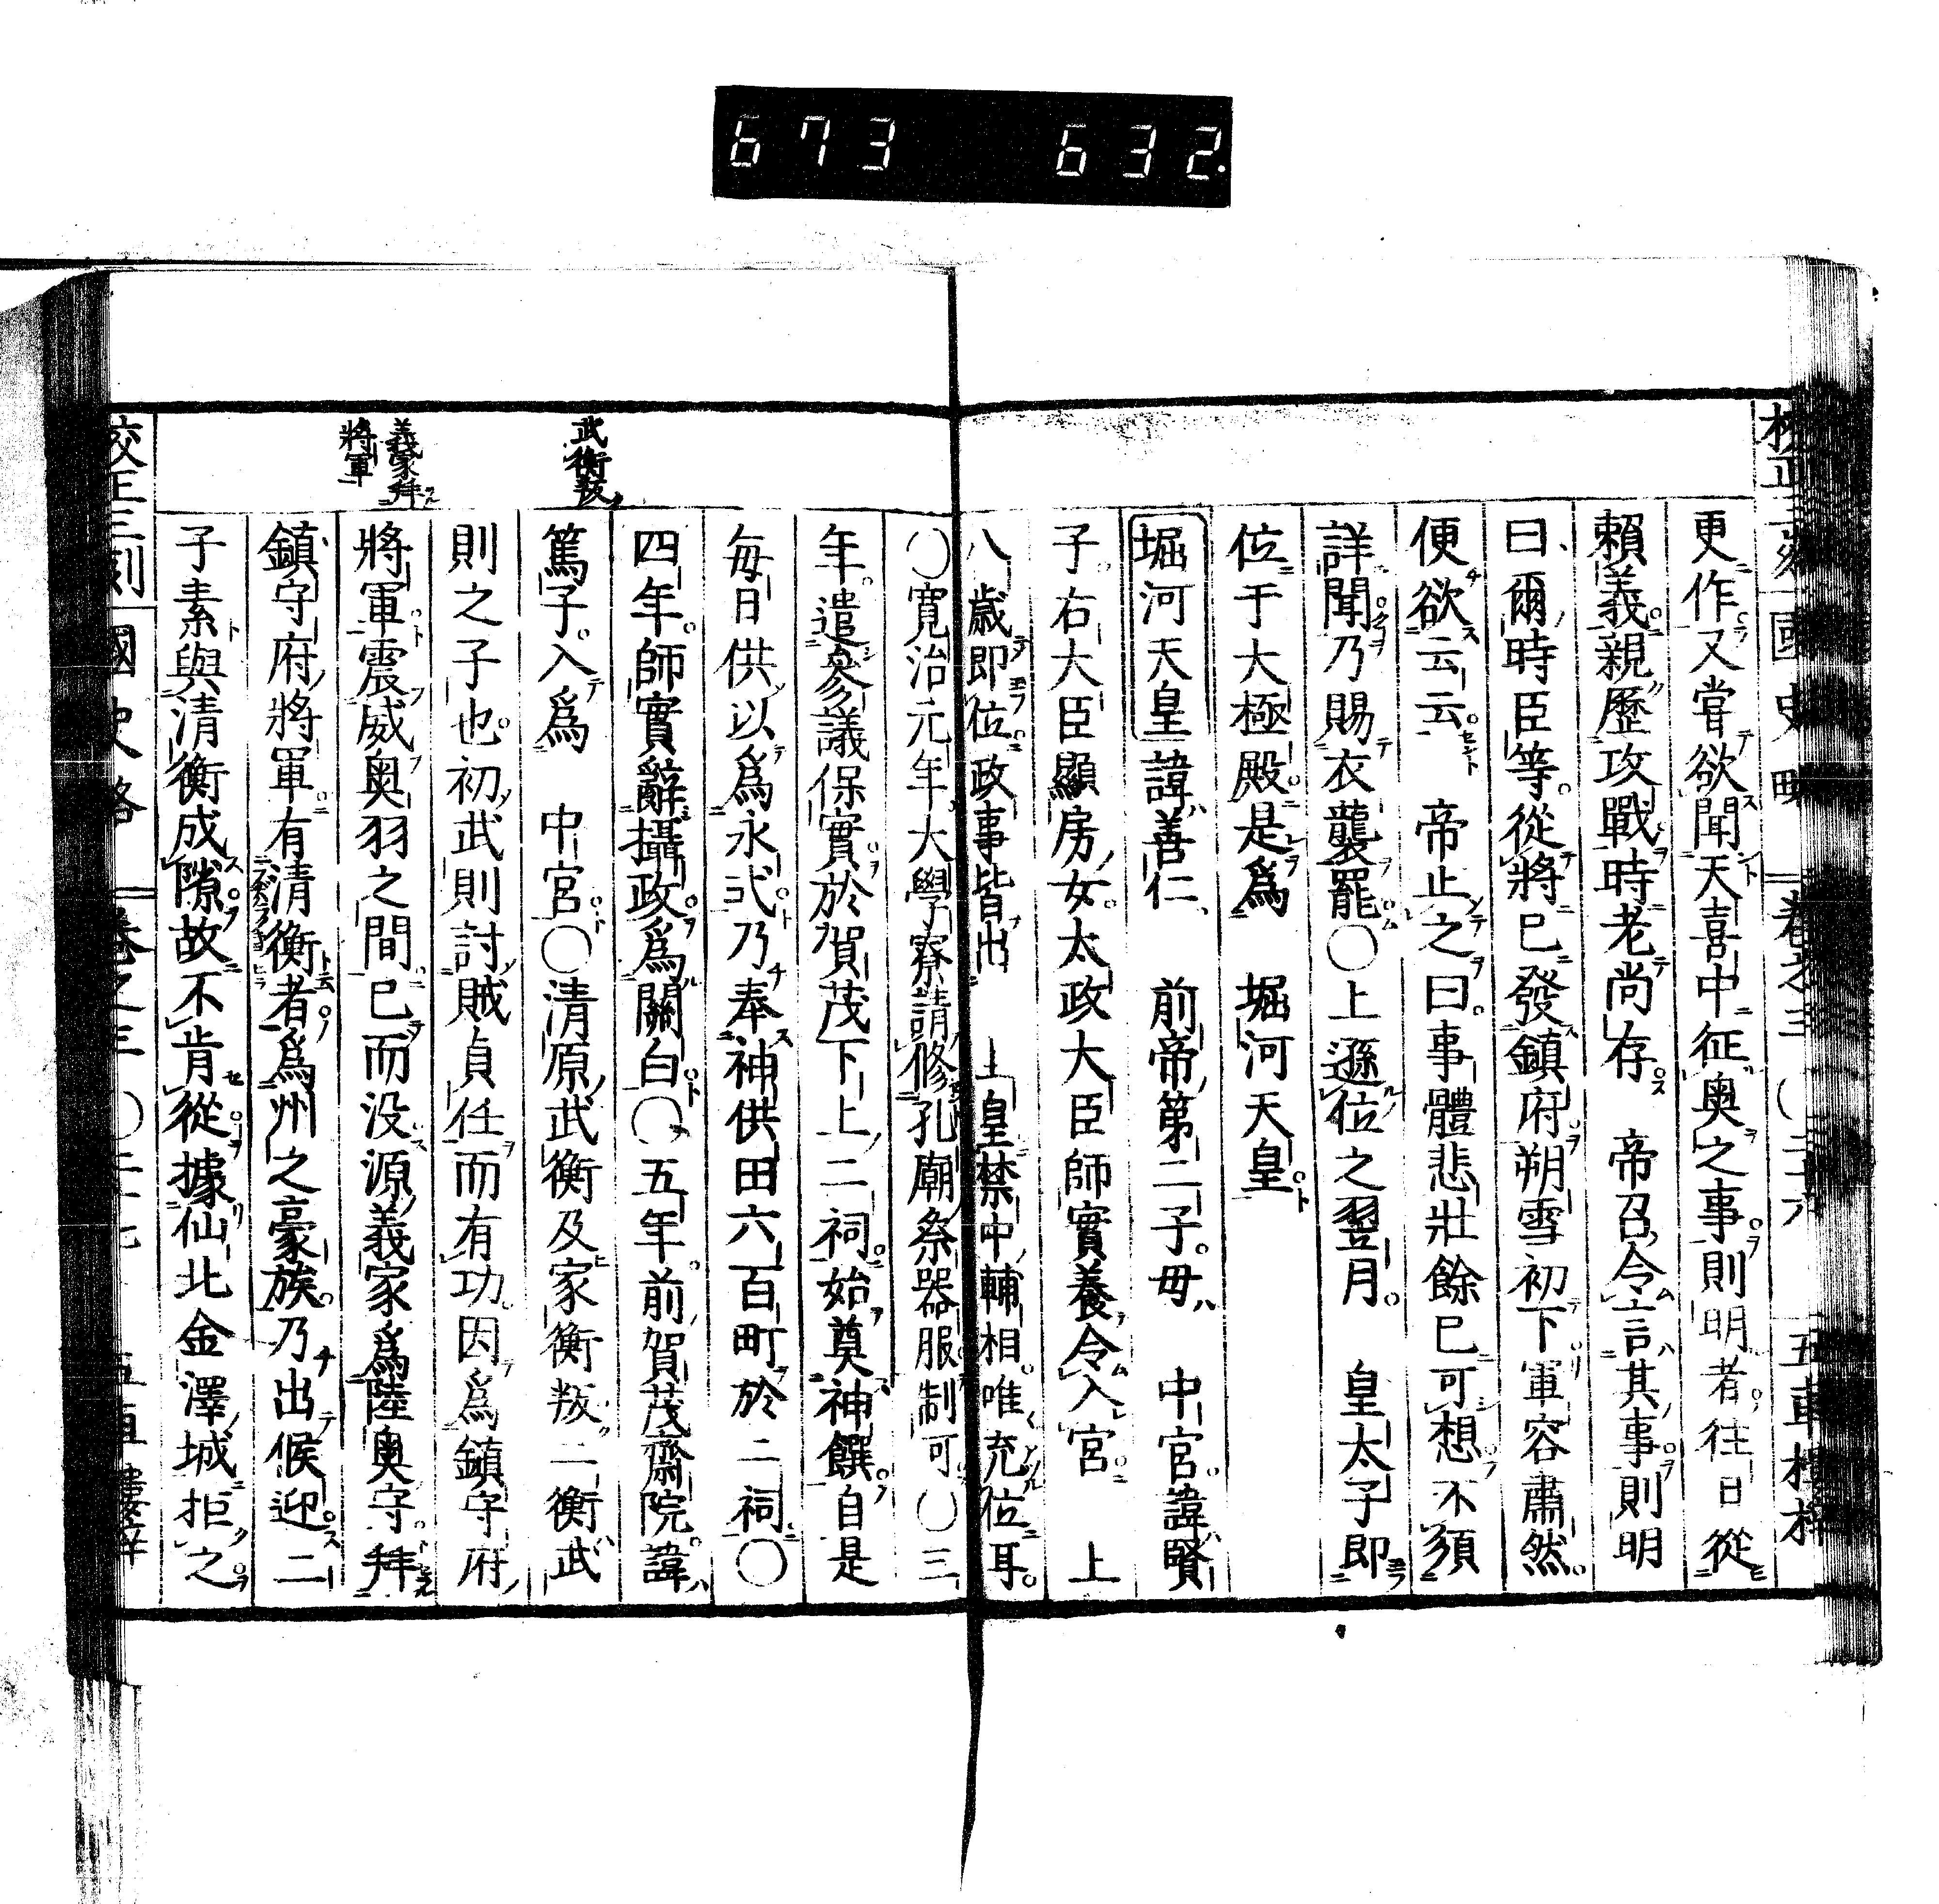 673 632.
國史略 卷之三
更作又嘗欲聞天喜中征奧之事則明者往日從
賴義親歷攻戰時老尚存 帝召令言其事則明
曰爾時臣等從將已發鎮府朔雪初下軍容肅然
便欲云云 帝止之曰事體悲壯餘已可想不須
詳聞乃賜衣襲罷〇上遜位之翌月 皇太子即
位于大極殿是爲 堀河天皇
堀河天皇諱善仁 前帝第二子母 中宮諱賢
子右大臣顯房女太政大臣師實養令入宮 上
八歲即位政事皆出 上皇禁中輔相唯充位耳
〇寬治元年大學寮請修孔廟祭器服制可〇三
年遣參議保實於賀茂下上二祠始奠神饌自是
每日供以爲永式乃奉神供田六百町於二祠〇
四年師實辭攝政爲關白〇五年前賀茂齋院諱
武衡叛
篤子入爲 中宮〇清原武衡及家衡叛二衡武
則之子也初武則討賊貞任而有功因爲鎮守府
義家拜
將軍
將軍震威奧羽之間已而没源義家爲陸奧守拜
鎮守府將軍有清衡者爲州之豪族乃出候迎二
子素與清衡成隙故不肯從據仙北金澤城拒之
校正三刻 國史略 卷之三